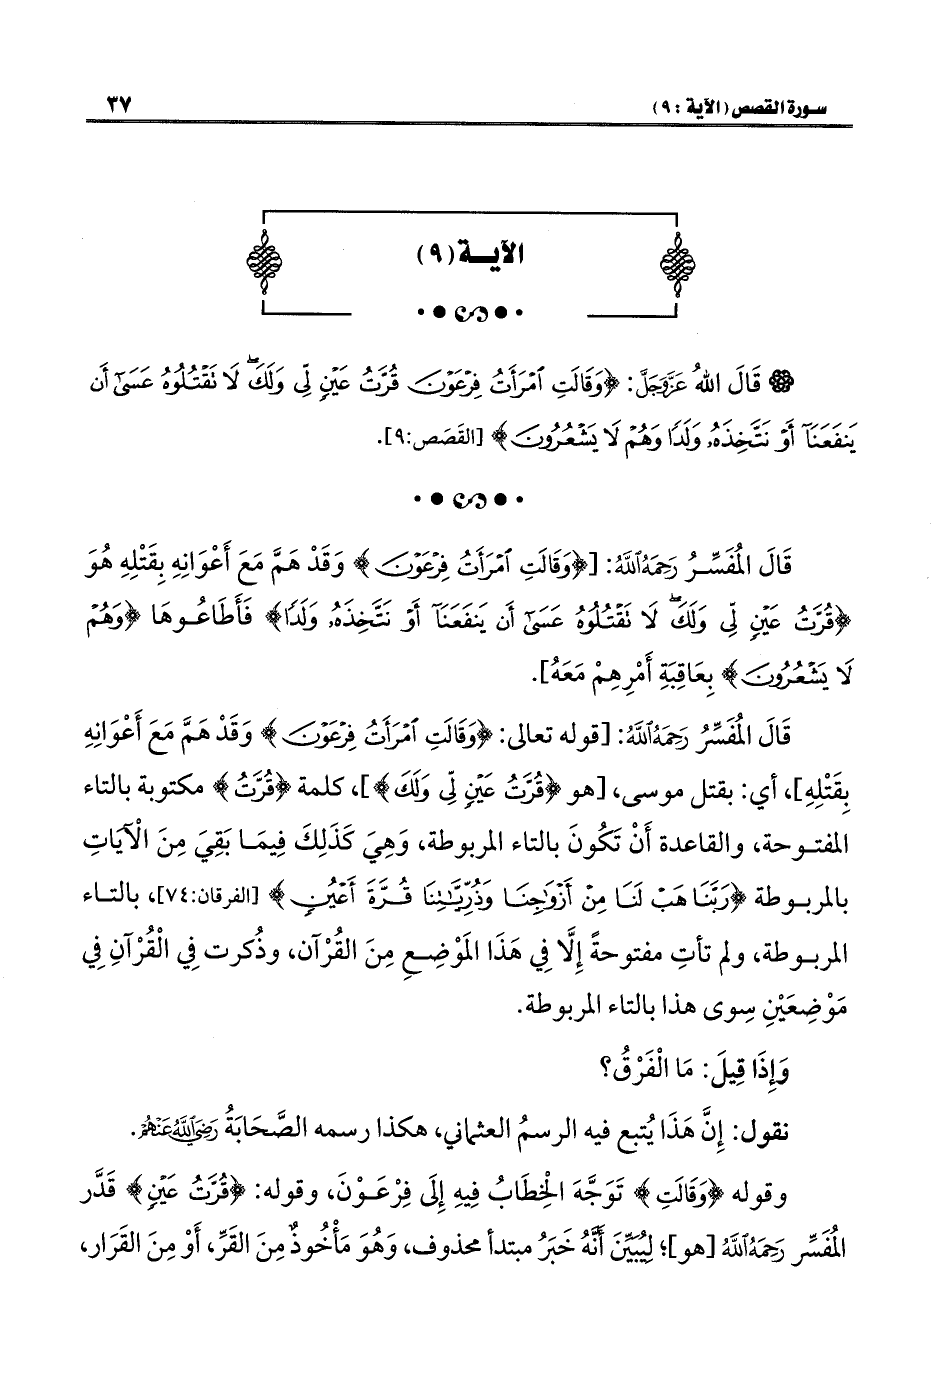 سورة القصص (الآية : ٩)
٣٧
الآيــة (٩)
قَالَ اللهُ عَزَّوَجَلَّ: ﴿وَقَالَتِ ٱمْرَأَتُ فِرْعَوْنَ قُرَّتُ عَيْنٍ لِّي وَلَكَۖ لَا نَقْتُلُوهُ عَسَىٰٓ أَن
يَنفَعَنَآ أَوْ نَتَّخِذَهُۥ وَلَدًا وَهُمْ لَا يَشْعُرُونَ﴾ [القَصَص:٩].
قَالَ الْمُفَسِّـرُ رَحِمَهُ ٱللَّهُ: [﴿وَقَالَتِ ٱمْرَأَتُ فِرْعَوْنَ﴾ وَقَدْ هَمَّ مَعَ أَعْوَانِهِ بِقَتْلِهِ هُوَ
﴿قُرَّتُ عَيْنٍ لِّي وَلَكَۖ لَا نَقْتُلُوهُ عَسَىٰٓ أَن يَنفَعَنَآ أَوْ نَتَّخِذَهُۥ وَلَدًا﴾ فَأَطَاعُـوهَا ﴿وَهُمْ
لَا يَشْعُرُونَ﴾ بِعَاقِبَةِ أَمْرِهِمْ مَعَهُ].
قَالَ الْمُفَسِّرُ رَحِمَهُ ٱللَّهُ: [قوله تعالى: ﴿وَقَالَتِ ٱمْرَأَتُ فِرْعَوْنَ﴾ وَقَدْ هَمَّ مَعَ أَعْوَانِهِ
بِقَتْلِهِ]، أي: بقتل موسى، [هو ﴿قُرَّتُ عَيْنٍ لِّي وَلَكَ﴾]، كلمة ﴿قُرَّتُ﴾ مكتوبة بالتاء
المفتـوحة، والقاعدة أَنْ تَكُونَ بالتاء المربوطة، وَهِيَ كَذَلِكَ فِيمَـا بَقِيَ مِنَ الْآيَاتِ
بالمربـوطة ﴿رَبَّنَا هَبْ لَنَا مِنْ أَزْوَٰجِنَا وَذُرِّيَّـٰتِنَا قُـرَّةَ أَعْيُنٍ﴾ [الفرقان:٧٤]، بالتـاء
المربـوطة، ولم تأتِ مفتوحةً إِلَّا فِي هَذَا الْمَوْضِـعِ مِنَ القُرْآن، وذُكرت فِي الْقُرْآنِ فِي
مَوْضِعَيْنِ سِوى هذا بالتاء المربوطة.
وَإِذَا قِيلَ: مَا الْفَرْقُ؟
نقول: إِنَّ هَذَا يُتبع فيه الرسمُ العثماني، هكذا رسمه الصَّحَابَةُ رَضِيَ اللَّهُ عَنْهُمْ.
وقوله ﴿وَقَالَتِ﴾ تَوَجَّهَ الْخِطَابُ فِيهِ إِلَى فِرْعَـوْنَ، وقوله: ﴿قُرَّتُ عَيْنٍ﴾ قَدَّر
الْمُفَسِّر رَحِمَهُ ٱللَّهُ [هو]؛ لِيُبَيِّنَ أَنَّهُ خَبَرُ مبتدأ محذوف، وَهُوَ مَأْخُوذٌ مِنَ القَرِّ، أَوْ مِنَ القَرَار،